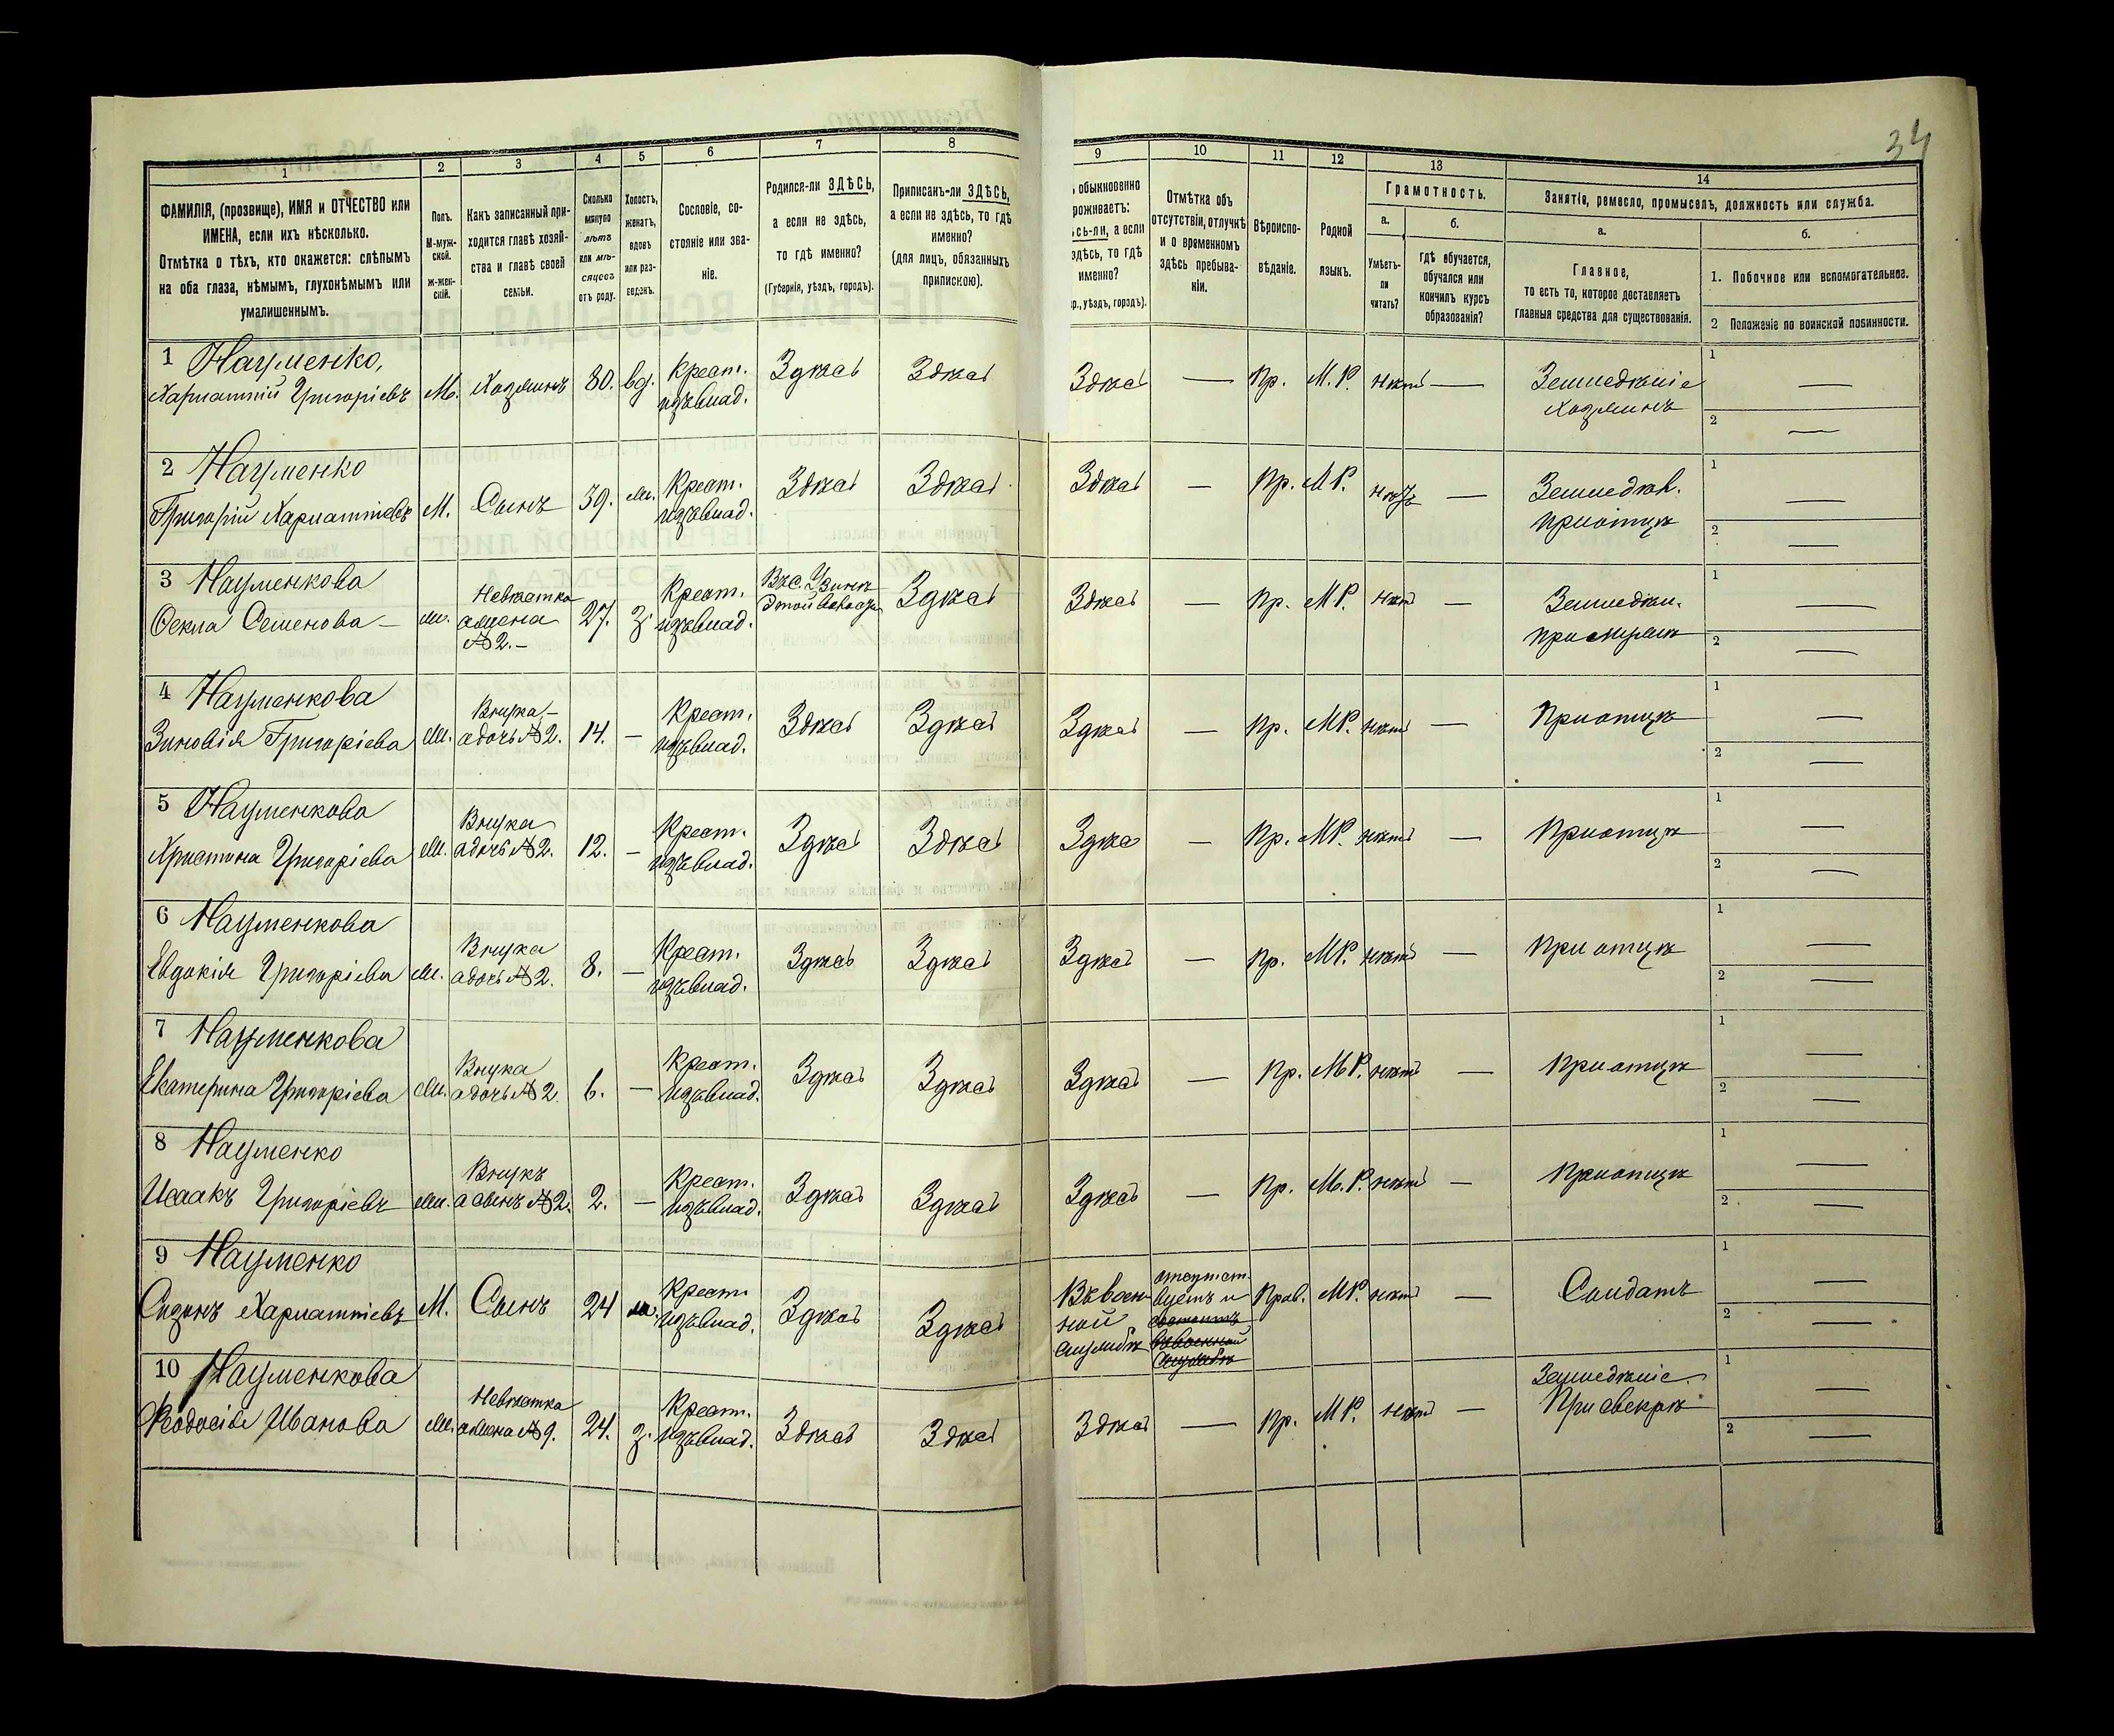 34
1 2 3 4 5 6 7 8 9 10 11 12 13 14
ФАМИЛІЯ, (прозвище), ИМЯ и ОТЧЕСТВО или
ИМЕНА, если ихъ нѣсколько.
Отмѣтка о тѣхъ, кто окажется: слѣпымъ
на оба глаза, нѣмымъ, глухонѣмымъ или
умалишеннымъ.
Полъ.
М-муж-
ской.
ж-жен-
скій.
Какъ записанный при-
ходится главѣ хозяй-
ства и главѣ своей
семьи.
Сколько
минуло
лѣтъ
или мѣ-
сяцевъ
отъ роду.
Холостъ,
женатъ,
вдовъ
или раз-
веденъ.
Сословіе, со-
стояніе или зва-
ніе.
Родился-ли ЗДѢСЬ,
а если не здѣсь,
то гдѣ именно?
(Губернія, уѣздъ, городъ).
Приписанъ-ли ЗДѢСЬ,
а если не здѣсь, то гдѣ
именно?
(для лицъ, обязанныхъ
припискою).
обыкновенно
роживаетъ:
сь-ли, а если
здѣсь, то гдѣ
именно?
р., уѣздъ, городъ).
Отмѣтка объ
отсутствіи, отлучкѣ
и о временномъ
здѣсь пребыва-
ніи.
Вѣроиспо-
вѣданіе.
Родной
языкъ.
Грамотность.
а.
Умѣетъ-
ли
читать?
б.
гдѣ обучается,
обучался или
кончилъ курсъ
образованія?
Занятіе, ремесло, промыселъ, должность или служба.
а.
Главное,
то есть то, которое доставляетъ
главныя средства для существованія.
б.
1. Побочное или вспомогательное.
2 Положеніе по воинской повинности.
1 Науменко,
Харлампій Григоріевъ М. Хозяинъ 80. вд. Крест. изъ влад. Здѣсь Здѣсь Здѣсь — Пр. М.Р. нѣтъ — Земледѣліе 1 —
Хозяинъ 2 —
2 Науменко
Григорій Харлампіевъ М. Сынъ 39. ж. Крест. изъ влад. Здѣсь Здѣсь Здѣсь — Пр. МР. нѣтъ — Земледѣл. 1 —
при отцѣ 2 —
3 Науменкова
Ѳекла Семенова — ж. Невѣстка а жена №2. — 27. з. Крест. изъ влад. Въ с. Узинѣ этой волости Здѣсь Здѣсь — Пр. МР. нѣтъ — Земледѣл. 1 —
при мужѣ 2 —
4 Науменкова
Зиновія Григоріева ж. Внучка, — а дочь №2. 14. — Крест. изъ влад. Здѣсь Здѣсь Здѣсь — Пр. МР. нѣтъ — При отцѣ 1 —
2 —
5 Науменкова
Христина Григоріева ж. Внучка а дочь №2. 12. — Крест. изъ влад. Здѣсь Здѣсь Здѣсь — Пр. МР. нѣтъ — При отцѣ 1 —
2 —
6 Науменкова
Евдокія Григоріева ж. Внучка а дочь №2. 8. — Крест. изъ влад. Здѣсь Здѣсь Здѣсь — Пр. МР. нѣтъ — При отцѣ 1 —
2 —
7 Науменкова
Екатерина Григоріева ж. Внука а дочь №2. 6. — Крест. изъ влад. Здѣсь Здѣсь Здѣсь — Пр. МР. нѣтъ — При отцѣ 1 —
2 —
8 Науменко
Исаакъ Григоріевъ м. Внукъ а сынъ №2. 2. — Крест. изъ влад. Здѣсь Здѣсь Здѣсь — Пр. М.Р. нѣтъ — При отцѣ 1 —
2 —
9 Науменко
Харлампіевъ М. Сынъ 24 ж. Крест. изъ влад. Здѣсь Здѣсь Въ воен-ной службѣ отсутст-вуетъ и состоитъ въ военной службѣ Прав. МР. нѣтъ — Солдатъ 1 —
2 —
10 Науменкова
Ѳеодосія Иванова ж. Невѣстка а жена №9. 24. з. Крест. изъ влад. Здѣсь Здѣсь Здѣсь — Пр. МР. нѣтъ — Земледѣліе 1 —
При свекрѣ 2 —